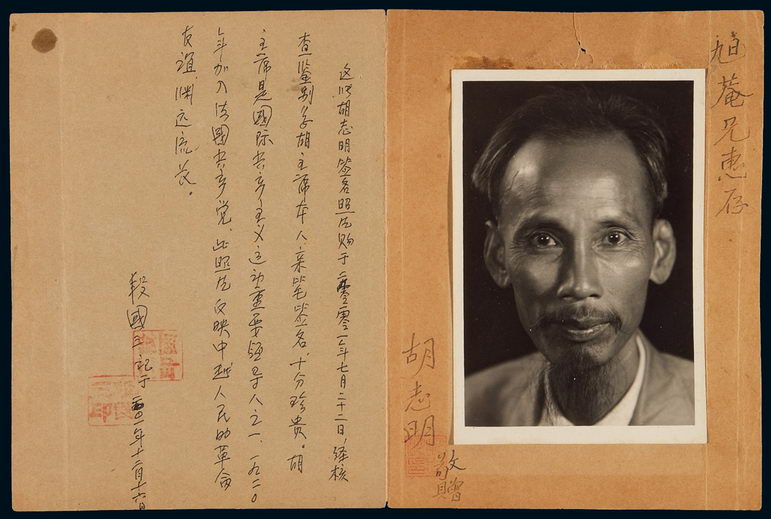 旭庵兄惠存
胡志明
敬贈
这帧胡志明签名照片购于二零零一年七月二十二日,经核
查鉴别系胡主席本人亲笔签名,十分珍贵。胡
主席是國际共产主义运动重要领导人之一,一九二〇
年加入法國共产党,此照片反映中越人民的革命
友谊渊远流长。
毅國 记于二〇〇一年十二月十六日